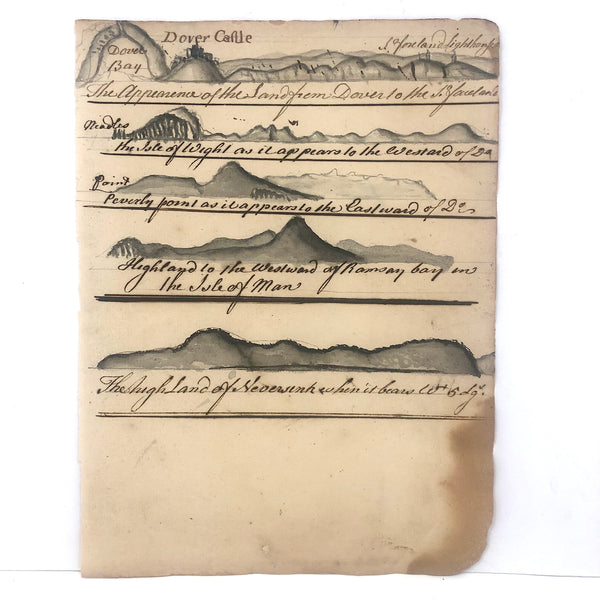 Dover Castle
So foreland lighthouse
Dover
Bay
The Appearence of the Land from Dover to the So foreland
Needles
the Isle of Wight as it appears to the Westard of Do
Point
Peverly point as it appears to the Eastward of Do
Highland to the Westward of Ramsay bay in
the Isle of Man
The high Land of Neversink when it bears Wt 5 Lgs.